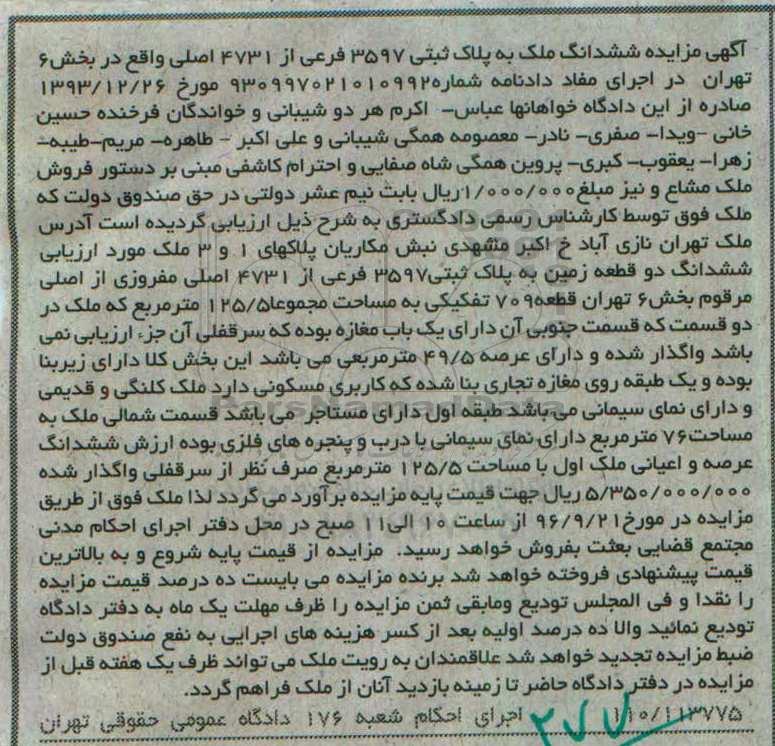 آگهی مزایده ششدانگ ملک به پلاک ثبتی ۳۵۹۷ فرعی از ۴۷۳۱ اصلی واقع در بخش۶
تهران در اجرای مفاد دادنامه شماره۹۳۰۹۹۷۰۲۱۰۱۰۹۹۲ مورخ ۱۳۹۳/۱۲/۲۶
صادره از این دادگاه خواهانها عباس- اکرم هر دو شیبانی و خواندگان فرخنده حسین
خانی -ویدا- صفری- نادر- معصومه همگی شیبانی و علی اکبر - طاهره- مریم-طیبه-
زهرا- یعقوب- کبری- پروین همگی شاه صفایی و احترام کاشفی مبنی بر دستور فروش
ملک مشاع و نیز مبلغ۱/۰۰۰/۰۰۰ریال بابت نیم عشر دولتی در حق صندوق دولت که
ملک فوق توسط کارشناس رسمی دادگستری به شرح ذیل ارزیابی گردیده است آدرس
ملک تهران نازی آباد خ اکبر مشهدی نبش مکاریان پلاکهای ۱ و ۳ ملک مورد ارزیابی
ششدانگ دو قطعه زمین به پلاک ثبتی۳۵۹۷ فرعی از ۴۷۳۱ اصلی مفروزی از اصلی
مرقوم بخش۶ تهران قطعه۷۰۹ تفکیکی به مساحت مجموعا۱۲۵/۵ مترمربع که ملک در
دو قسمت که قسمت جنوبی آن دارای یک باب مغازه بوده که سرقفلی آن جزء ارزیابی نمی
باشد واگذار شده و دارای عرصه ۴۹/۵ مترمربعی می باشد این بخش کلا دارای زیربنا
بوده و یک طبقه روی مغازه تجاری بنا شده که کاربری مسکونی دارد ملک کلنگی و قدیمی
و دارای نمای سیمانی می باشد طبقه اول دارای مستاجر می باشد قسمت شمالی ملک به
مساحت۷۶ مترمربع دارای نمای سیمانی با درب و پنجره های فلزی بوده ارزش ششدانگ
عرصه و اعیانی ملک اول با مساحت ۱۲۵/۵ مترمربع صرف نظر از سرقفلی واگذار شده
۵/۳۵۰/۰۰۰/۰۰۰ ریال جهت قیمت پایه مزایده برآورد می گردد لذا ملک فوق از طریق
مزایده در مورخ۹۶/۹/۲۱ از ساعت ۱۰ الی۱۱ صبح در محل دفتر اجرای احکام مدنی
مجتمع قضایی بعثت بفروش خواهد رسید. مزایده از قیمت پایه شروع و به بالاترین
قیمت پیشنهادی فروخته خواهد شد برنده مزایده می بایست ده درصد قیمت مزایده
را نقدا و فی المجلس تودیع ومابقی ثمن مزایده را ظرف مهلت یک ماه به دفتر دادگاه
تودیع نمائید والا ده درصد اولیه بعد از کسر هزینه های اجرایی به نفع صندوق دولت
ضبط مزایده تجدید خواهد شد علاقمندان به رویت ملک می تواند ظرف یک هفته قبل از
مزایده در دفتر دادگاه حاضر تا زمینه بازدید آنان از ملک فراهم گردد.
۱۱۰/۱۱۳۷۷۵ اجرای احکام شعبه ۱۷۶ دادگاه عمومی حقوقی تهران
۲۷۷
ParsNamadData